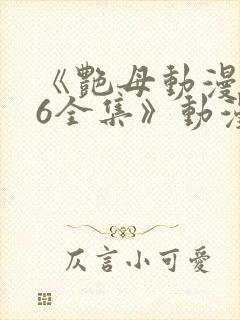 《艷母動漫
6全集》動漫
仄言小可愛